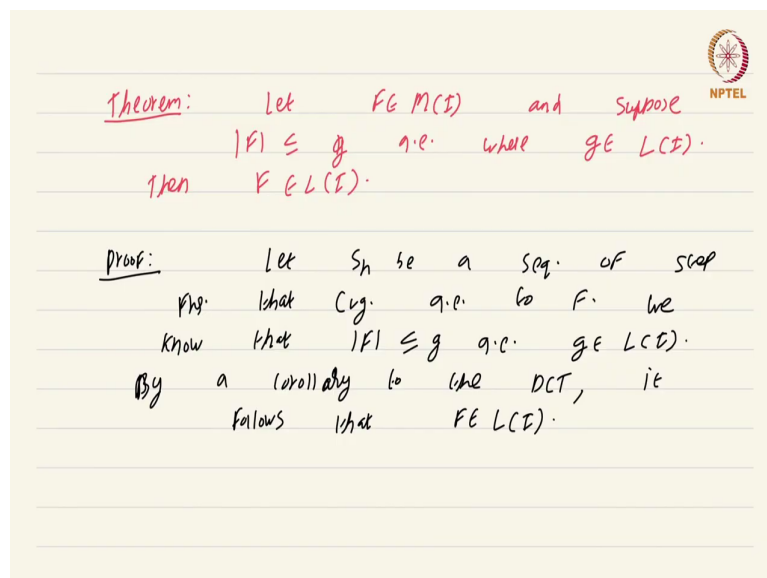 NPTEL
Theorem: Let F ∈ M(I) and suppose
|F| ≤ g a.e. where g ∈ L(I).
Then F ∈ L(I).
Proof: Let Sn be a seq. of step
Fns. that Cvg. a.e. to F. We
know that |F| ≤ g a.e. g ∈ L(I).
By a corollary to the DCT, it
follows that F ∈ L(I).